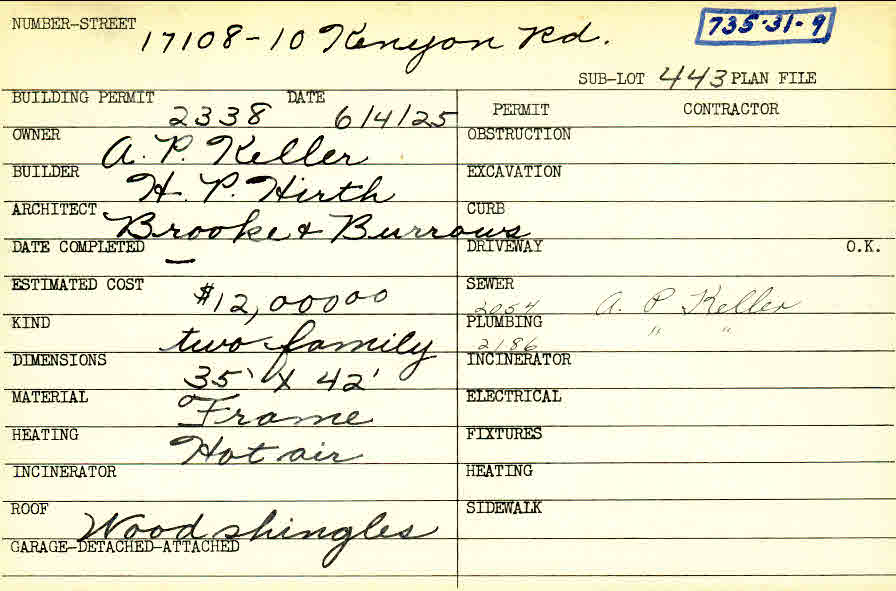 NUMBER-STREET 17108-10 Kenyon Rd. 735-31-9
SUB-LOT 443 PLAN FILE
BUILDING PERMIT 2338 DATE 6/4/25 PERMIT CONTRACTOR
OWNER A. P. Keller OBSTRUCTION
BUILDER H. P. Hirth EXCAVATION
ARCHITECT Brooke & Burrows CURB
DATE COMPLETED — DRIVEWAY O.K.
ESTIMATED COST $12,000.00 SEWER 2054 A. P Keller
KIND two family PLUMBING 2186 " "
DIMENSIONS 35' X 42' INCINERATOR
MATERIAL Frame ELECTRICAL
HEATING Hot air FIXTURES
INCINERATOR HEATING
ROOF Wood shingles SIDEWALK
GARAGE-DETACHED-ATTACHED